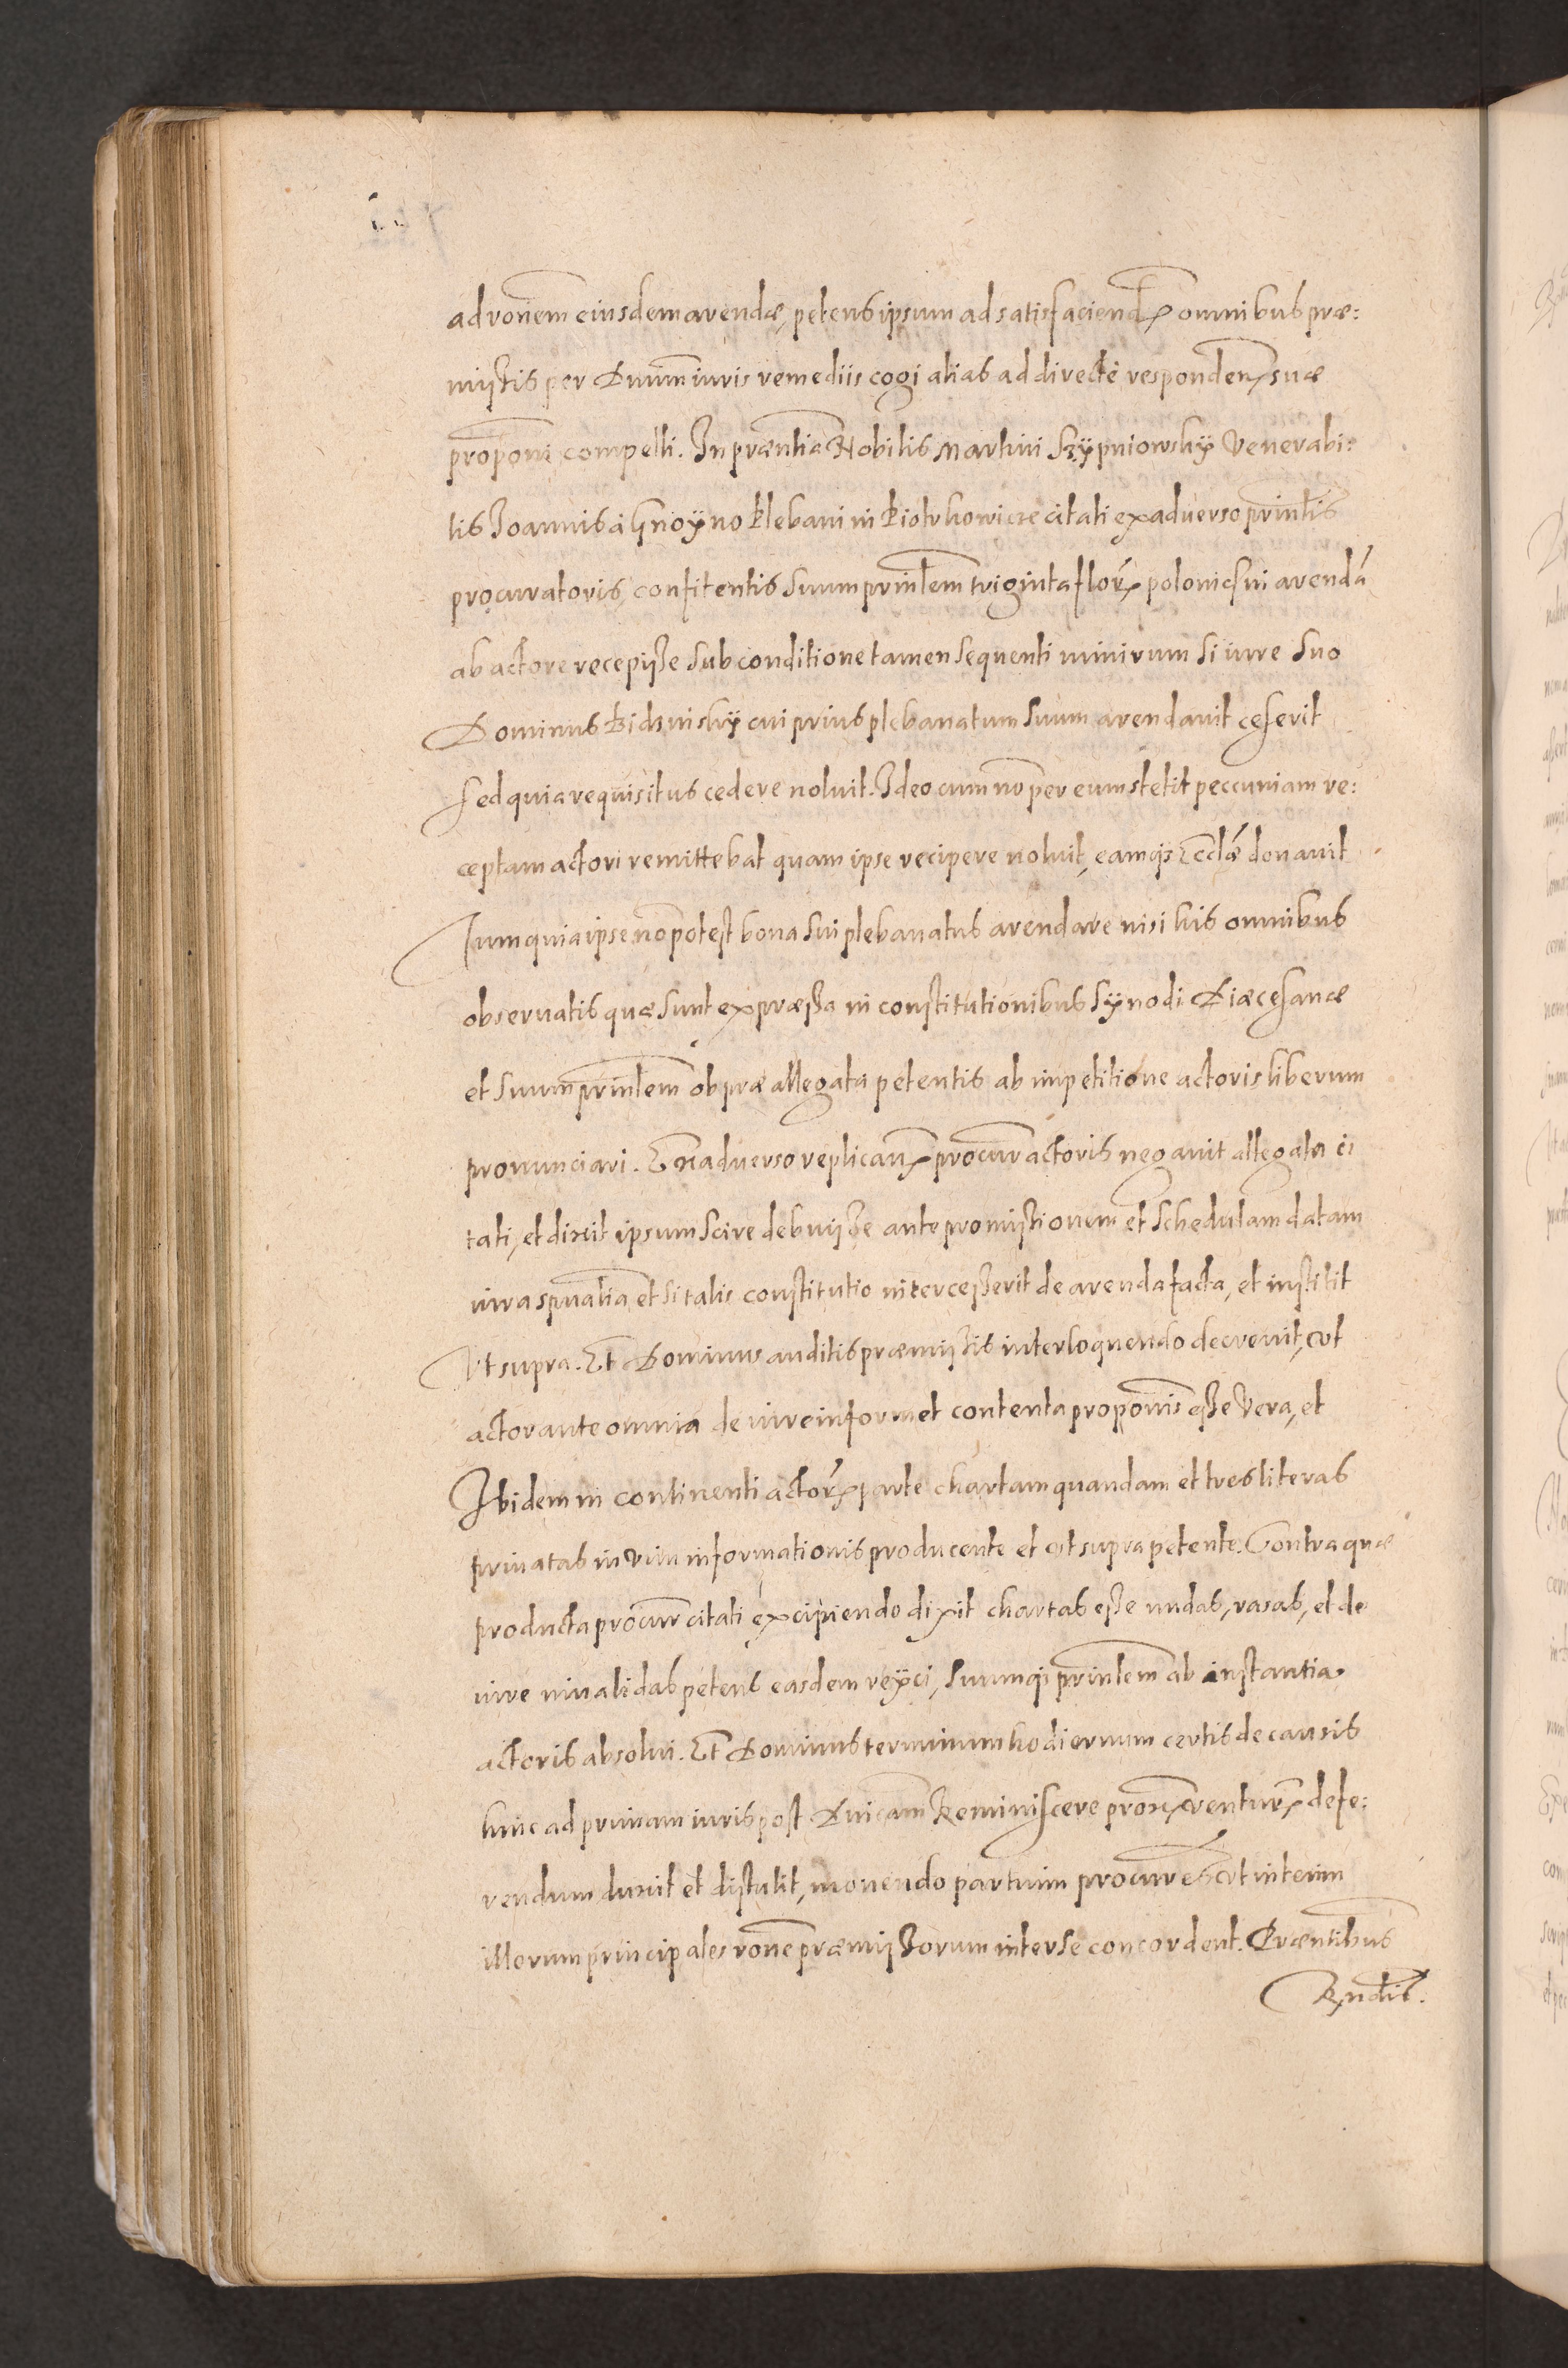 ad ronem eiusdem arendæ, petens ipsum ad satisfaciend omnibus præ:
missis per Dnum iuris remediis cogi alias ad directe responden suæ
proponi compelli. In præntia Nobilis Martini Krzÿpniowskÿ Venerabi:
lis Joannis à Gnoÿno Plebani in Piotrkowice citati ex aduerso prinlis
procuratoris, confitentis suum prinlem triginta flor polonic sui arendá
ab actore recepisse sub conditione tamen sequenti nimirum si iure suo
Dominus Bidzinskÿ cui prius plebanatum suum arendauit cesserit
sed quia requisitus cedere noluit. Ideo cum no per eum stetit peccuniam re:
ceptam actori remittebat quam ipse recipere noluit, eamqs Ecclæ donauit
Tum quia ipse no potest bona sui plebanatus arendare nisi his omnibus
obseruatis quæ sunt expræssa in constitutionibus Sÿnodi Diæcesanæ
et suum prinlem ob præallegata petentis ab inpetitione actoris liberum
pronunciari. E conaduerso replican procur actoris negauit allegata ci
tati, et dixit ipsum scire debuisse ante promissionem et schedulam datam
iura spualia, et si talis constitutio intercesserit de arenda facta, et institit
Vt supra. Et Dominus auditis præmissis interloquendo decreuit, vt
actor ante omnia de iure informet contenta proponis esse vera, et
Ibidem in continenti actor parte chartam quandam et tres literas
priuatas in vim informationis producente et vt supra petente. Contra quæ
producta procur citati excipiendo dixit chartas esse nudas, rasas, et de
iure inualidas petens easdem reÿci, suumqs prinlem ab instantia
actoris absolui. Et Dominus terminum hodiernum certis de causis
hinc ad primam iuris post Dnicam Reminiscere prox venturr defe:
rendum duxit et distulit, monendo partium procures vt interim
illorum principales rone præmissorum inter se concordent. Præntibus
Rndis.